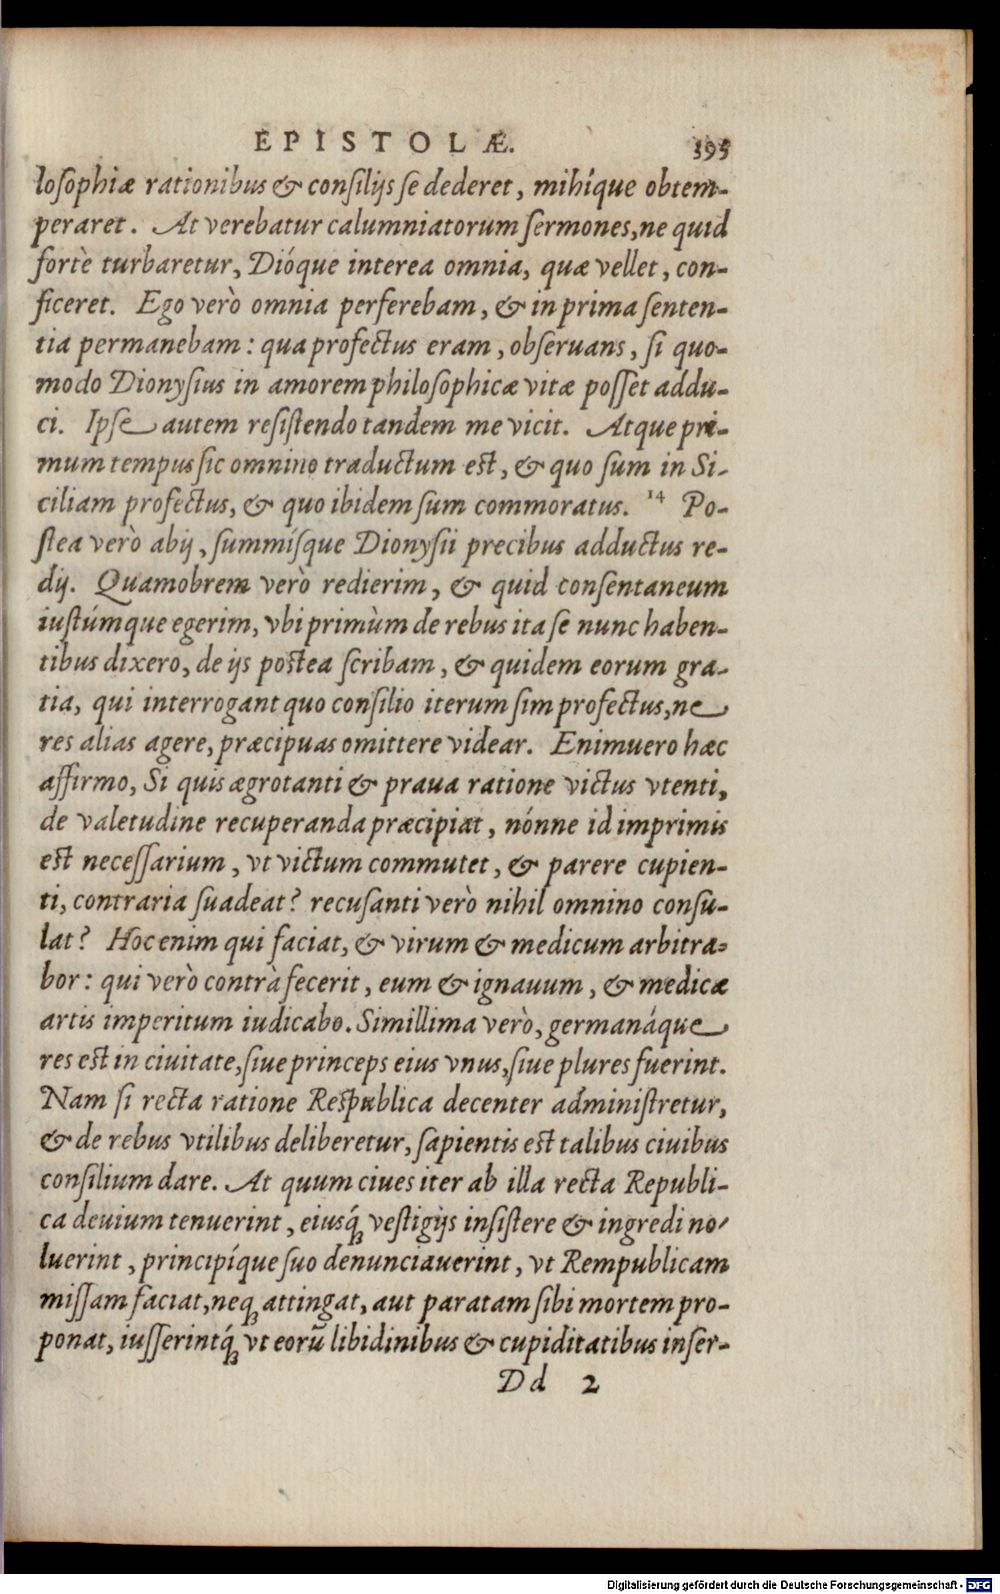 EPISTOLÆ. 395
losophiæ rationibus & consilijs se dederet, mihíque obtem-
peraret. At verebatur calumniatorum sermones, ne quid
fortè turbaretur, Dióque interea omnia, quæ vellet, con-
ficeret. Ego verò omnia perferebam, & in prima senten-
tia permanebam: qua profectus eram, obseruans, si quo-
modo Dionysius in amorem philosophicæ vitæ posset addu-
ci. Ipse autem resistendo tandem me vicit. Atque pri-
mum tempus sic omnino traductum est, & quo sum in Si-
ciliam profectus, & quo ibidem sum commoratus. 14 Po-
stea verò abij, summísque Dionysii precibus adductus re-
dij. Quamobrem verò redierim, & quid consentaneum
iustúmque egerim, vbi primùm de rebus ita se nunc haben-
tibus dixero, de ijs postea scribam, & quidem eorum gra-
tia, qui interrogant quo consilio iterum sim profectus, ne
res alias agere, præcipuas omittere videar. Enimuero hæc
affirmo, Si quis ægrotanti & praua ratione victus vtenti,
de valetudine recuperanda præcipiat, nónne id imprimis
est necessarium, vt victum commutet, & parere cupien-
ti, contraria suadeat? recusanti verò nihil omnino consu-
lat? Hoc enim qui faciat, & virum & medicum arbitra-
bor: qui verò contrà fecerit, eum & ignauum, & medicæ
artis imperitum iudicabo. Simillima verò, germanáque
res est in ciuitate, siue princeps eius vnus, siue plures fuerint.
Nam si recta ratione Respublica decenter administretur,
& de rebus vtilibus deliberetur, sapientis est talibus ciuibus
consilium dare. At quum ciues iter ab illa recta Republi-
ca deuium tenuerint, eiusq́; vestigijs insistere & ingredi no-
luerint, principíque suo denunciauerint, vt Rempublicam
missam faciat, neq; attingat, aut paratam sibi mortem pro-
ponat, iusserintq́; vt eorũ libidinibus & cupiditatibus inser-
Dd 2
Digitalisierung gefördert durch die Deutsche Forschungsgemeinschaft - DFG